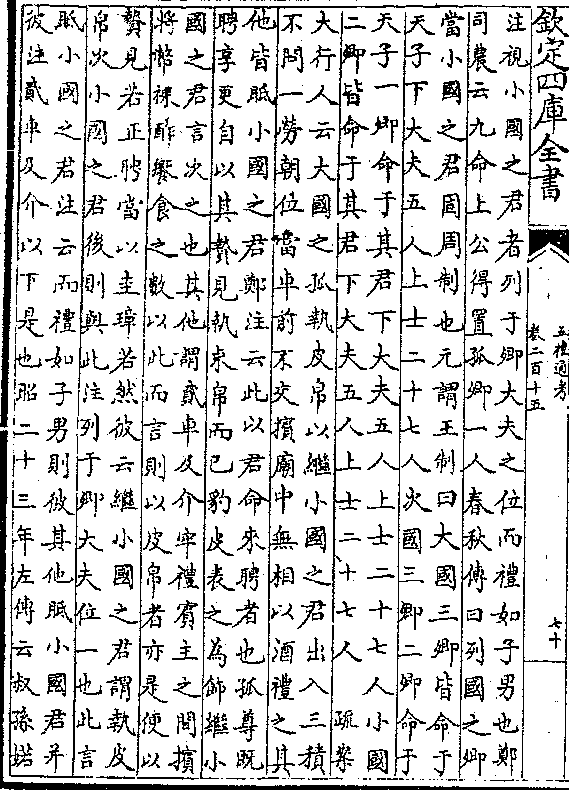 欽定四庫全書
五禮通考
卷二百十五
七十
注視小國之君者列于卿大夫之位而禮如子男也鄭
司農云九命上公得置孤卿一人春秋傳曰列國之卿
當小國之君固周制也元謂王制曰大國三卿皆命于
天子下大夫五人上士二十七人次國三卿二卿命于
天子一卿命于其君下大夫五人上士二十七人小國
二卿皆命于其君下大夫五人上士二十七人 疏案
大行人云大國之孤執皮帛以繼小國之君出入三積
不問一勞朝位當車前不交擯廟中無相以酒禮之其
他皆眡小國之君鄭注云此以君命來聘者也孤尊既
聘享更自以其贄見執束帛而已豹皮表之為飾繼小
國之君言次之也其他謂貳車及介牢禮賓主之間擯
將幣祼酢饗食之數以此而言則以皮帛者亦是使以
贄見若正聘當以圭璋若然彼云繼小國之君謂執皮
帛次小國之君後則與此注列于卿大夫位一也此言
眡小國之君注云而禮如子男則彼其他眡小國君并
彼注貳車及介以下是也昭二十三年左傳云叔孫婼